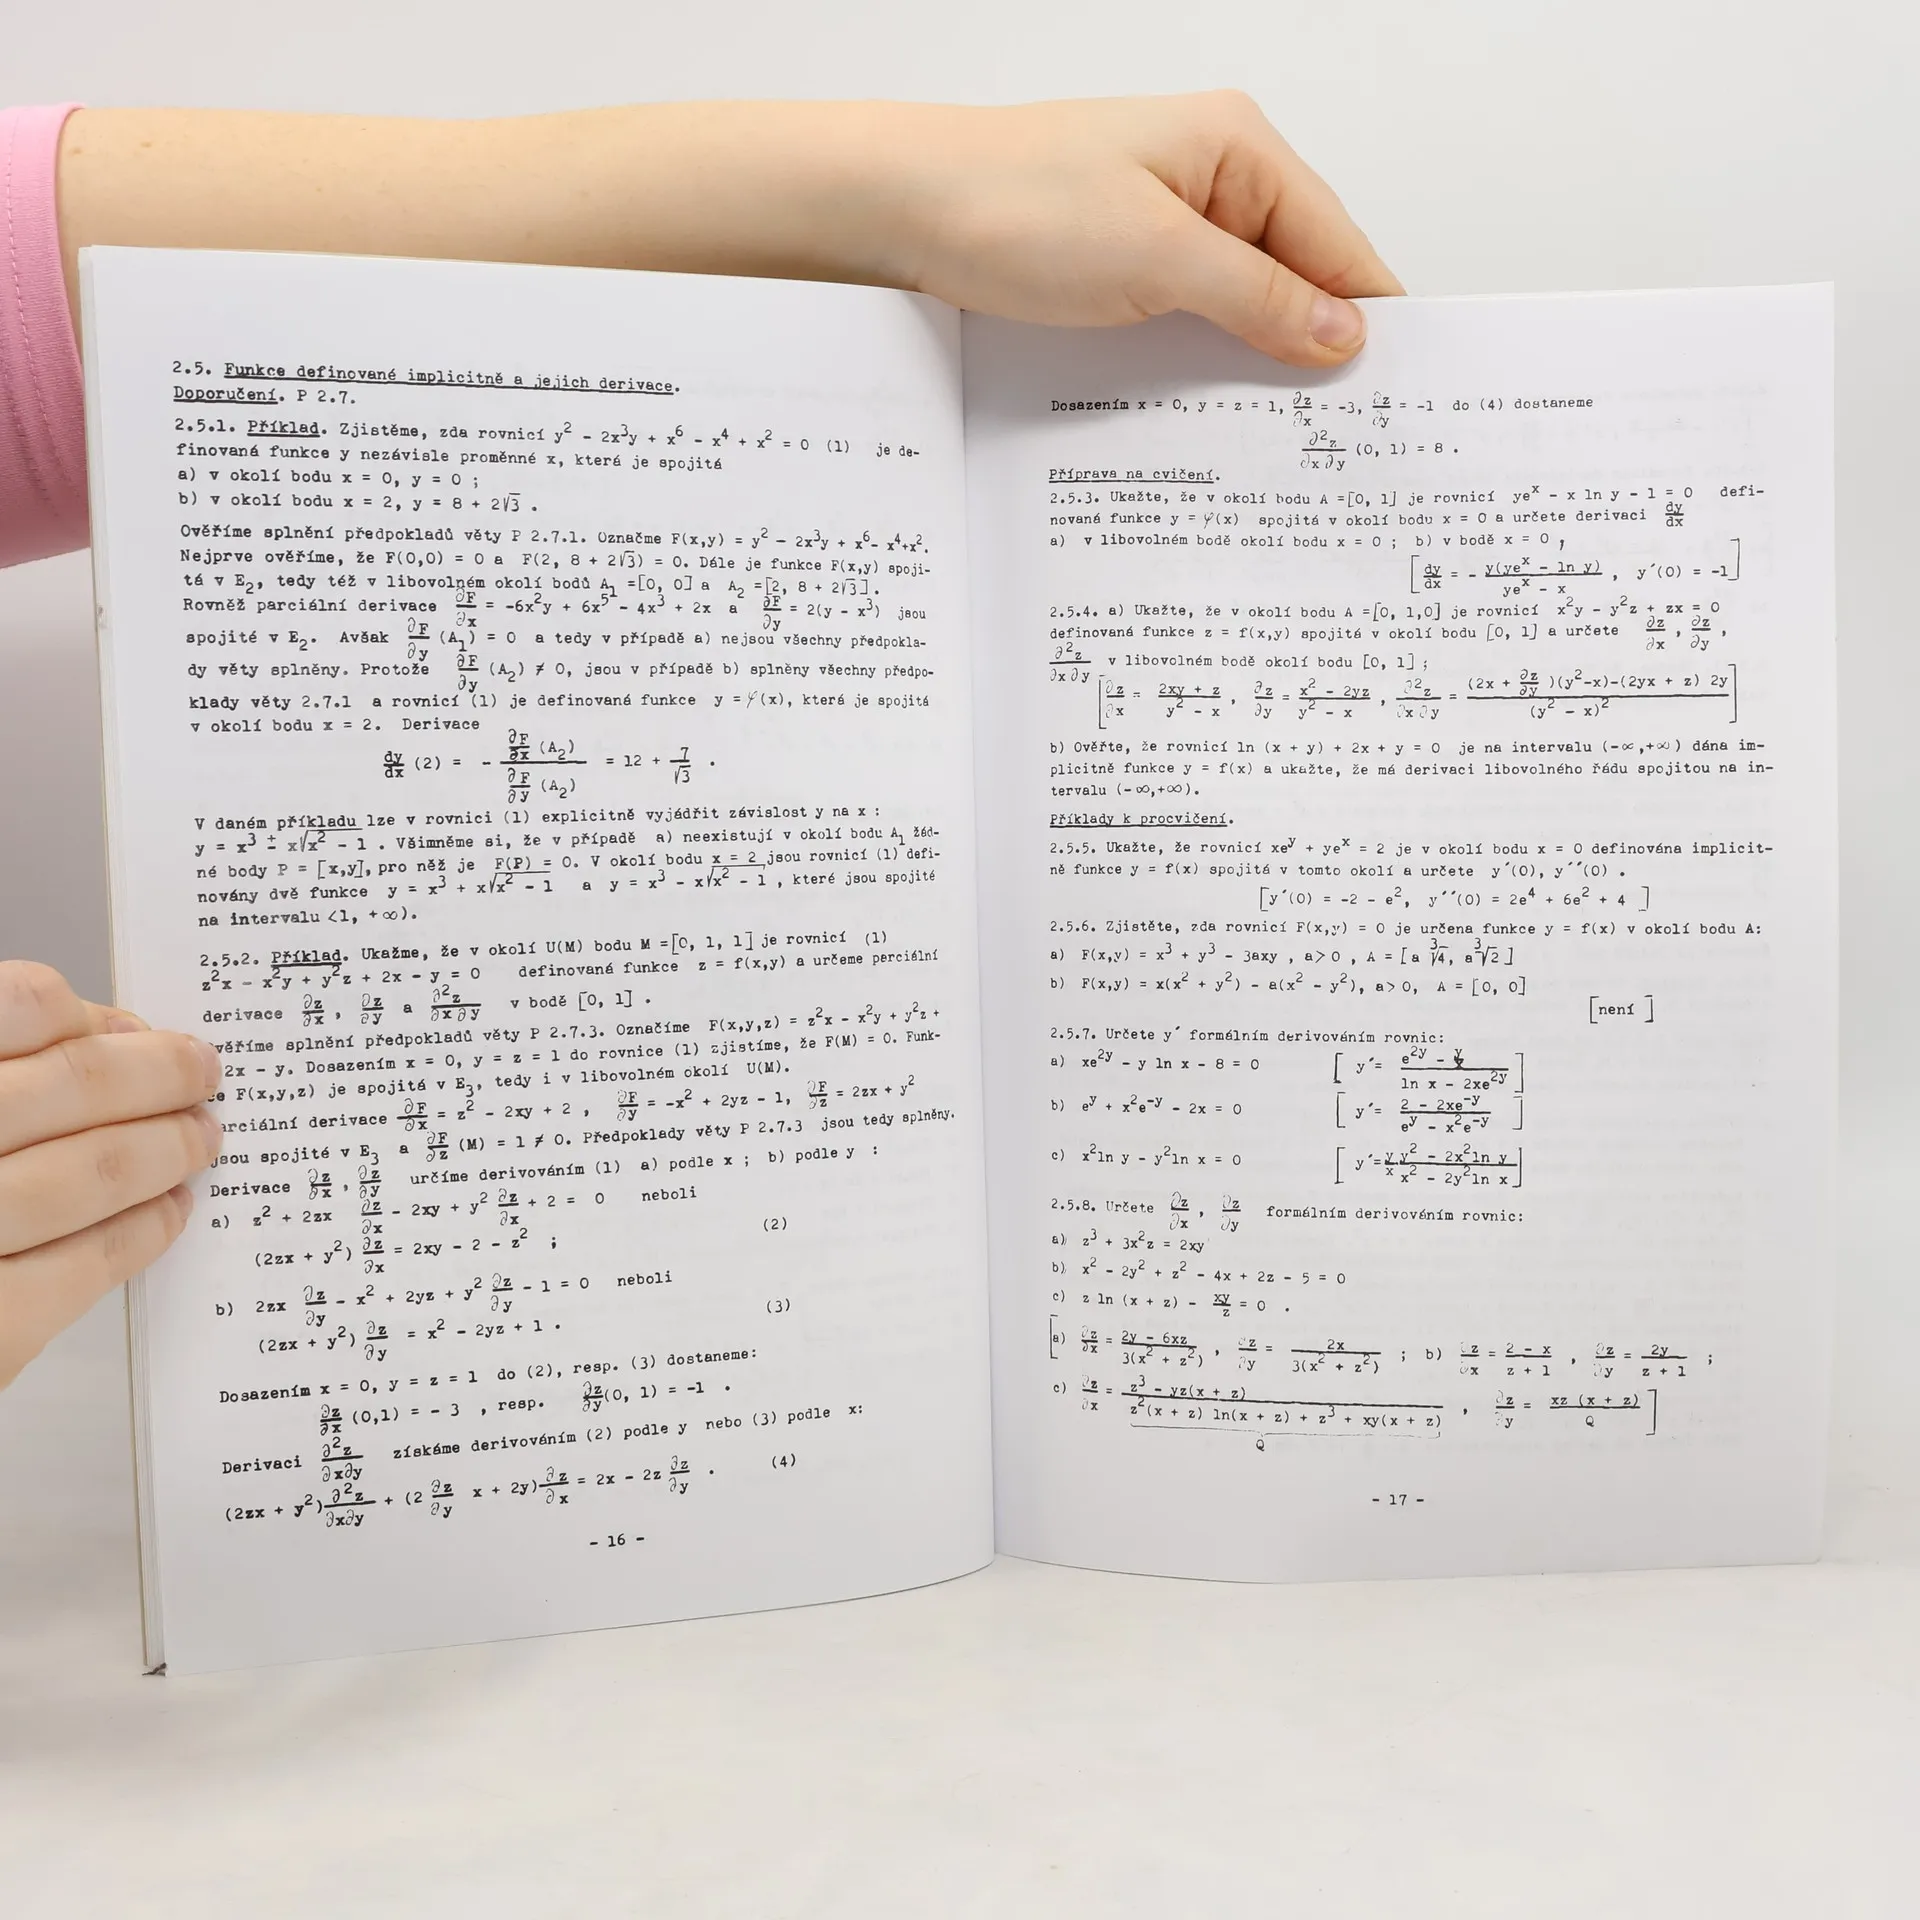 2.5. Funkce definované implicitně a jejich derivace.
Doporučení. P 2.7.
2.5.1. Příklad. Zjistěme, zda rovnicí y² - 2x³y + x⁶ - x⁴ + x² = 0 (1) je de-
finovaná funkce y nezávisle proměnné x, která je spojitá
a) v okolí bodu x = 0, y = 0 ;
b) v okolí bodu x = 2, y = 8 + 2√3 .
Ověříme splnění předpokladů věty P 2.7.1. Označme F(x,y) = y² - 2x³y + x⁶- x⁴+x².
Nejprve ověříme, že F(0,0) = 0 a F(2, 8 + 2√3) = 0. Dále je funkce F(x,y) spoji-
tá v E₂, tedy též v libovolném okolí bodů A₁ =[0, 0] a A₂ =[2, 8 + 2√3].
Rovněž parciální derivace ∂F/∂x = -6x²y + 6x⁵ - 4x³ + 2x a ∂F/∂y = 2(y - x³) jsou
spojité v E₂. Avšak ∂F/∂y (A₁) = 0 a tedy v případě a) nejsou všechny předpokla-
dy věty splněny. Protože ∂F/∂y (A₂) ≠ 0, jsou v případě b) splněny všechny předpo-
klady věty 2.7.1 a rovnicí (1) je definovaná funkce y = φ(x), která je spojitá
v okolí bodu x = 2. Derivace
dy/dx (2) = - ∂F/∂x (A₂) / ∂F/∂y (A₂) = 12 + 7/√3 .
V daném příkladu lze v rovnici (1) explicitně vyjádřit závislost y na x :
y = x³ ± x√x² - 1 . Všimněme si, že v případě a) neexistují v okolí bodu A₁ žád-
né body P = [x,y], pro něž je F(P) = 0. V okolí bodu x = 2 jsou rovnicí (1) defi-
novány dvě funkce y = x³ + x√x² - 1 a y = x³ - x√x² - 1 , které jsou spojité
na intervalu <1, +∞).
2.5.2. Příklad. Ukažme, že v okolí U(M) bodu M =[0, 1, 1] je rovnicí (1)
z²x - x²y + y²z + 2x - y = 0 definovaná funkce z = f(x,y) a určeme perciální
derivace ∂z/∂x , ∂z/∂y a ∂²z/∂x∂y v bodě [0, 1] .
věříme splnění předpokladů věty P 2.7.3. Označíme F(x,y,z) = z²x - x²y + y²z +
2x - y. Dosazením x = 0, y = z = 1 do rovnice (1) zjistíme, že F(M) = 0. Funk-
ce F(x,y,z) je spojitá v E₃, tedy i v libovolném okolí U(M).
arciální derivace ∂F/∂x = z² - 2xy + 2 , ∂F/∂y = -x² + 2yz - 1, ∂F/∂z = 2zx + y²
jsou spojité v E₃ a ∂F/∂z (M) = 1 ≠ 0. Předpoklady věty P 2.7.3 jsou tedy splněny.
Derivace ∂z/∂x , ∂z/∂y určíme derivováním (1) a) podle x ; b) podle y :
a) z² + 2zx ∂z/∂x - 2xy + y² ∂z/∂x + 2 = 0 neboli
(2zx + y²) ∂z/∂x = 2xy - 2 - z² ; (2)
b) 2zx ∂z/∂y - x² + 2yz + y² ∂z/∂y - 1 = 0 neboli
(2zx + y²) ∂z/∂y = x² - 2yz + 1 . (3)
Dosazením x = 0, y = z = 1 do (2), resp. (3) dostaneme:
∂z/∂x (0,1) = - 3 , resp. ∂z/∂y(0, 1) = -1 .
Derivaci ∂²z/∂x∂y získáme derivováním (2) podle y nebo (3) podle x:
(2zx + y²) ∂²z/∂x∂y + (2 ∂z/∂y x + 2y) ∂z/∂x = 2x - 2z ∂z/∂y . (4)
- 16 -
Dosazením x = 0, y = z = 1, ∂z/∂x = -3, ∂z/∂y = -1 do (4) dostaneme
∂²z/∂x∂y (0, 1) = 8 .
Příprava na cvičení.
2.5.3. Ukažte, že v okolí bodu A =[0, 1] je rovnicí yeˣ - x ln y - 1 = 0 defi-
novaná funkce y = φ(x) spojitá v okolí bodu x = 0 a určete derivaci dy/dx
a) v libovolném bodě okolí bodu x = 0 ; b) v bodě x = 0 ,
[dy/dx = - y(yeˣ - ln y)/yeˣ - x , y´(0) = -1]
2.5.4. a) Ukažte, že v okolí bodu A =[0, 1,0] je rovnicí x²y - y²z + zx = 0
definovaná funkce z = f(x,y) spojitá v okolí bodu [0, 1] a určete ∂z/∂x , ∂z/∂y ,
∂²z/∂x∂y v libovolném bodě okolí bodu [0, 1] ;
[∂z/∂x = 2xy + z/y² - x , ∂z/∂y = x² - 2yz/y² - x , ∂²z/∂x∂y = (2x + ∂z/∂y )(y²-x)-(2yx + z) 2y/(y² - x)²]
b) Ověřte, že rovnicí ln (x + y) + 2x + y = 0 je na intervalu (-∞,+∞) dána im-
plicitně funkce y = f(x) a ukažte, že má derivaci libovolného řádu spojitou na in-
tervalu (-∞,+∞).
Příklady k procvičení.
2.5.5. Ukažte, že rovnicí xeʸ + yeˣ = 2 je v okolí bodu x = 0 definována implicit-
ně funkce y = f(x) spojitá v tomto okolí a určete y´(0), y´´(0) .
[y´(0) = -2 - e², y´´(0) = 2e⁴ + 6e² + 4 ]
2.5.6. Zjistěte, zda rovnicí F(x,y) = 0 je určena funkce y = f(x) v okolí bodu A:
a) F(x,y) = x³ + y³ - 3axy , a> 0 , A = [a ∛4, a∛2 ]
b) F(x,y) = x(x² + y²) - a(x² - y²), a> 0, A = [0, 0]
[není ]
2.5.7. Určete y´ formálním derivováním rovnic:
a) xe²ʸ - y ln x - 8 = 0 [ y´= e²ʸ - y/x / ln x - 2xe²ʸ ]
b) eʸ + x²e⁻ʸ - 2x = 0 [ y´= 2 - 2xe⁻ʸ/eʸ - x²e⁻ʸ ]
c) x²ln y - y²ln x = 0 [ y´= y/x y² - 2x²ln y/x² - 2y²ln x ]
2.5.8. Určete ∂z/∂x , ∂z/∂y formálním derivováním rovnic:
a) z³ + 3x²z = 2xy
b) x² - 2y² + z² - 4x + 2z - 5 = 0
c) z ln (x + z) - xy/z = 0 .
[a) ∂z/∂x = 2y - 6xz/3(x² + z²) , ∂z/∂y = 2x/3(x² + z²) ; b) ∂z/∂x = 2 - x/z + 1 , ∂z/∂y = 2y/z + 1 ;
c) ∂z/∂x = z³ - yz(x + z)/z²(x + z) ln(x + z) + z³ + xy(x + z) , ∂z/∂y = xz (x + z)/Q ]
Q
- 17 -